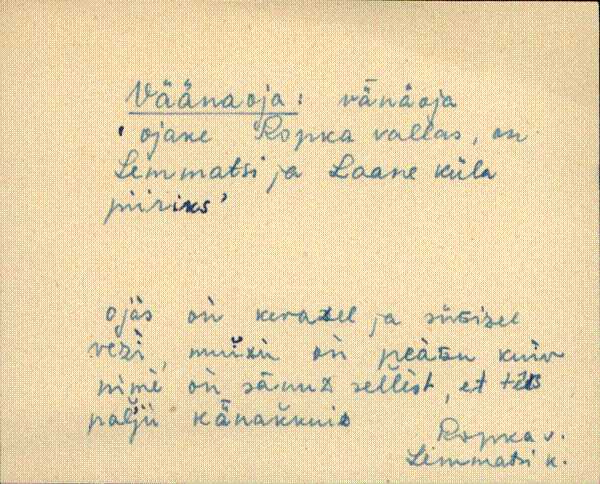 Väänaoja: vänäoja
' ojake Ropka vallas, on
Lemmatsi ja Laane küla
piiriks'
ojàs on kevazel ja sügizel
vezì, muìzu on peàʙu kuiv
nime on sänuz sellest, et
palju känakkuiᴅ
Ropka v.
Lemmatsi k.